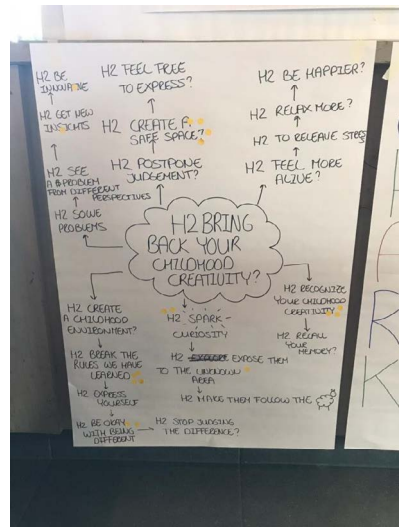 H2 BE
INNOVATIVE
H2 GET NEW
INSIGHTS
H2 SEE
A PROBLEM
FROM DIFFERENT
PERSPECTIVES
H2 SOLVE
PROBLEMS
H2 FEEL FREE
TO EXPRESS?
H2 CREATE A
SAFE SPACE?
H2 POSTPONE
JUDGEMENT?
H2 BE HAPPIER?
H2 RELAX MORE?
H2 TO RELEAVE STRESS
H2 FEEL MORE
ALIVE?
H2 BRING
BACK YOUR
CHILDHOOD
CREATIVITY?
H2 CREATE
A CHILDHOOD
ENVIRONMENT?
H2 BREAK THE
RULES WE HAVE
LEARNED
H2 EXPRESS
YOURSELF
H2 BE OKAY
WITH BEING
DIFFERENT
H2 STOP JUDGING
THE DIFFERENCE?
H2 SPARK
CURIOSITY
H2 EXPLORE EXPOSE THEM
TO THE UNKNOWN
AREA
H2 MAKE THEM FOLLOW THE
H2 RECOGNIZE
YOUR CHILDHOOD
CREATIVITY
H2 RECALL
YOUR
MEMORY?
A
R
K